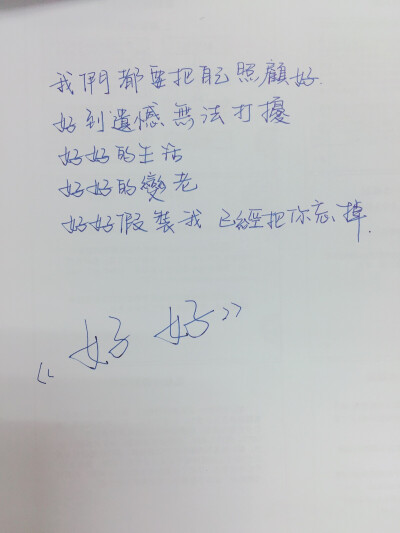 我們都要把自己照顧好.
好到遺憾無法打擾
好好的生活
好好的變老
好好假裝我已經把你忘掉.
《好好》